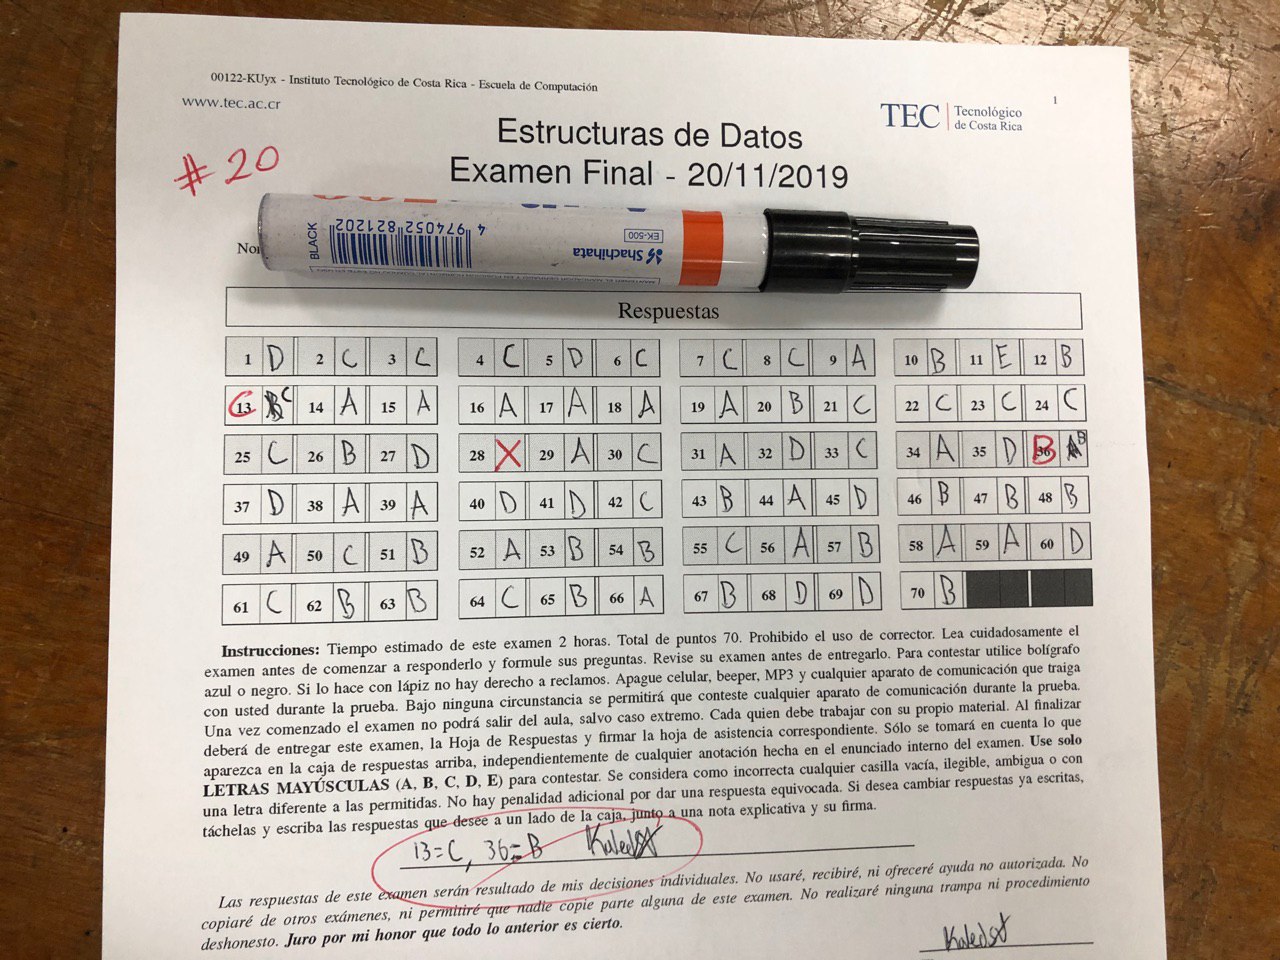 00122-KUyx - Instituto Tecnológico de Costa Rica - Escuela de Computación
1
www.tec.ac.cr
TEC Tecnológico
de Costa Rica
Estructuras de Datos
Examen Final - 20/11/2019
# 20
BLACK
4 974052 821202
EK-500
Shachihata
Respuestas
1 D 2 C 3 C 4 C 5 D 6 C 7 C 8 C 9 A 10 B 11 E 12 B
C 13 B C 14 A 15 A 16 A 17 A 18 A 19 A 20 B 21 C 22 C 23 C 24 C
25 C 26 B 27 D 28 X 29 A 30 C 31 A 32 D 33 C 34 A 35 D 36 B A B
37 D 38 A 39 A 40 D 41 D 42 C 43 B 44 A 45 D 46 B 47 B 48 B
49 A 50 C 51 B 52 A 53 B 54 B 55 C 56 A 57 B 58 A 59 A 60 D
61 C 62 B 63 B 64 C 65 B 66 A 67 B 68 D 69 D 70 B
Instrucciones: Tiempo estimado de este examen 2 horas. Total de puntos 70. Prohibido el uso de corrector. Lea cuidadosamente el
examen antes de comenzar a responderlo y formule sus preguntas. Revise su examen antes de entregarlo. Para contestar utilice bolígrafo
azul o negro. Si lo hace con lápiz no hay derecho a reclamos. Apague celular, beeper, MP3 y cualquier aparato de comunicación que traiga
con usted durante la prueba. Bajo ninguna circunstancia se permitirá que conteste cualquier aparato de comunicación durante la prueba.
Una vez comenzado el examen no podrá salir del aula, salvo caso extremo. Cada quien debe trabajar con su propio material. Al finalizar
deberá de entregar este examen, la Hoja de Respuestas y firmar la hoja de asistencia correspondiente. Sólo se tomará en cuenta lo que
aparezca en la caja de respuestas arriba, independientemente de cualquier anotación hecha en el enunciado interno del examen. Use solo
LETRAS MAYÚSCULAS (A, B, C, D, E) para contestar. Se considera como incorrecta cualquier casilla vacía, ilegible, ambigua o con
una letra diferente a las permitidas. No hay penalidad adicional por dar una respuesta equivocada. Si desea cambiar respuestas ya escritas,
táchelas y escriba las respuestas que desee a un lado de la caja, junto a una nota explicativa y su firma.
13=C, 36=B
Las respuestas de este examen serán resultado de mis decisiones individuales. No usaré, recibiré, ni ofreceré ayuda no autorizada. No
copiaré de otros exámenes, ni permitiré que nadie copie parte alguna de este examen. No realizaré ninguna trampa ni procedimiento
deshonesto. Juro por mi honor que todo lo anterior es cierto.